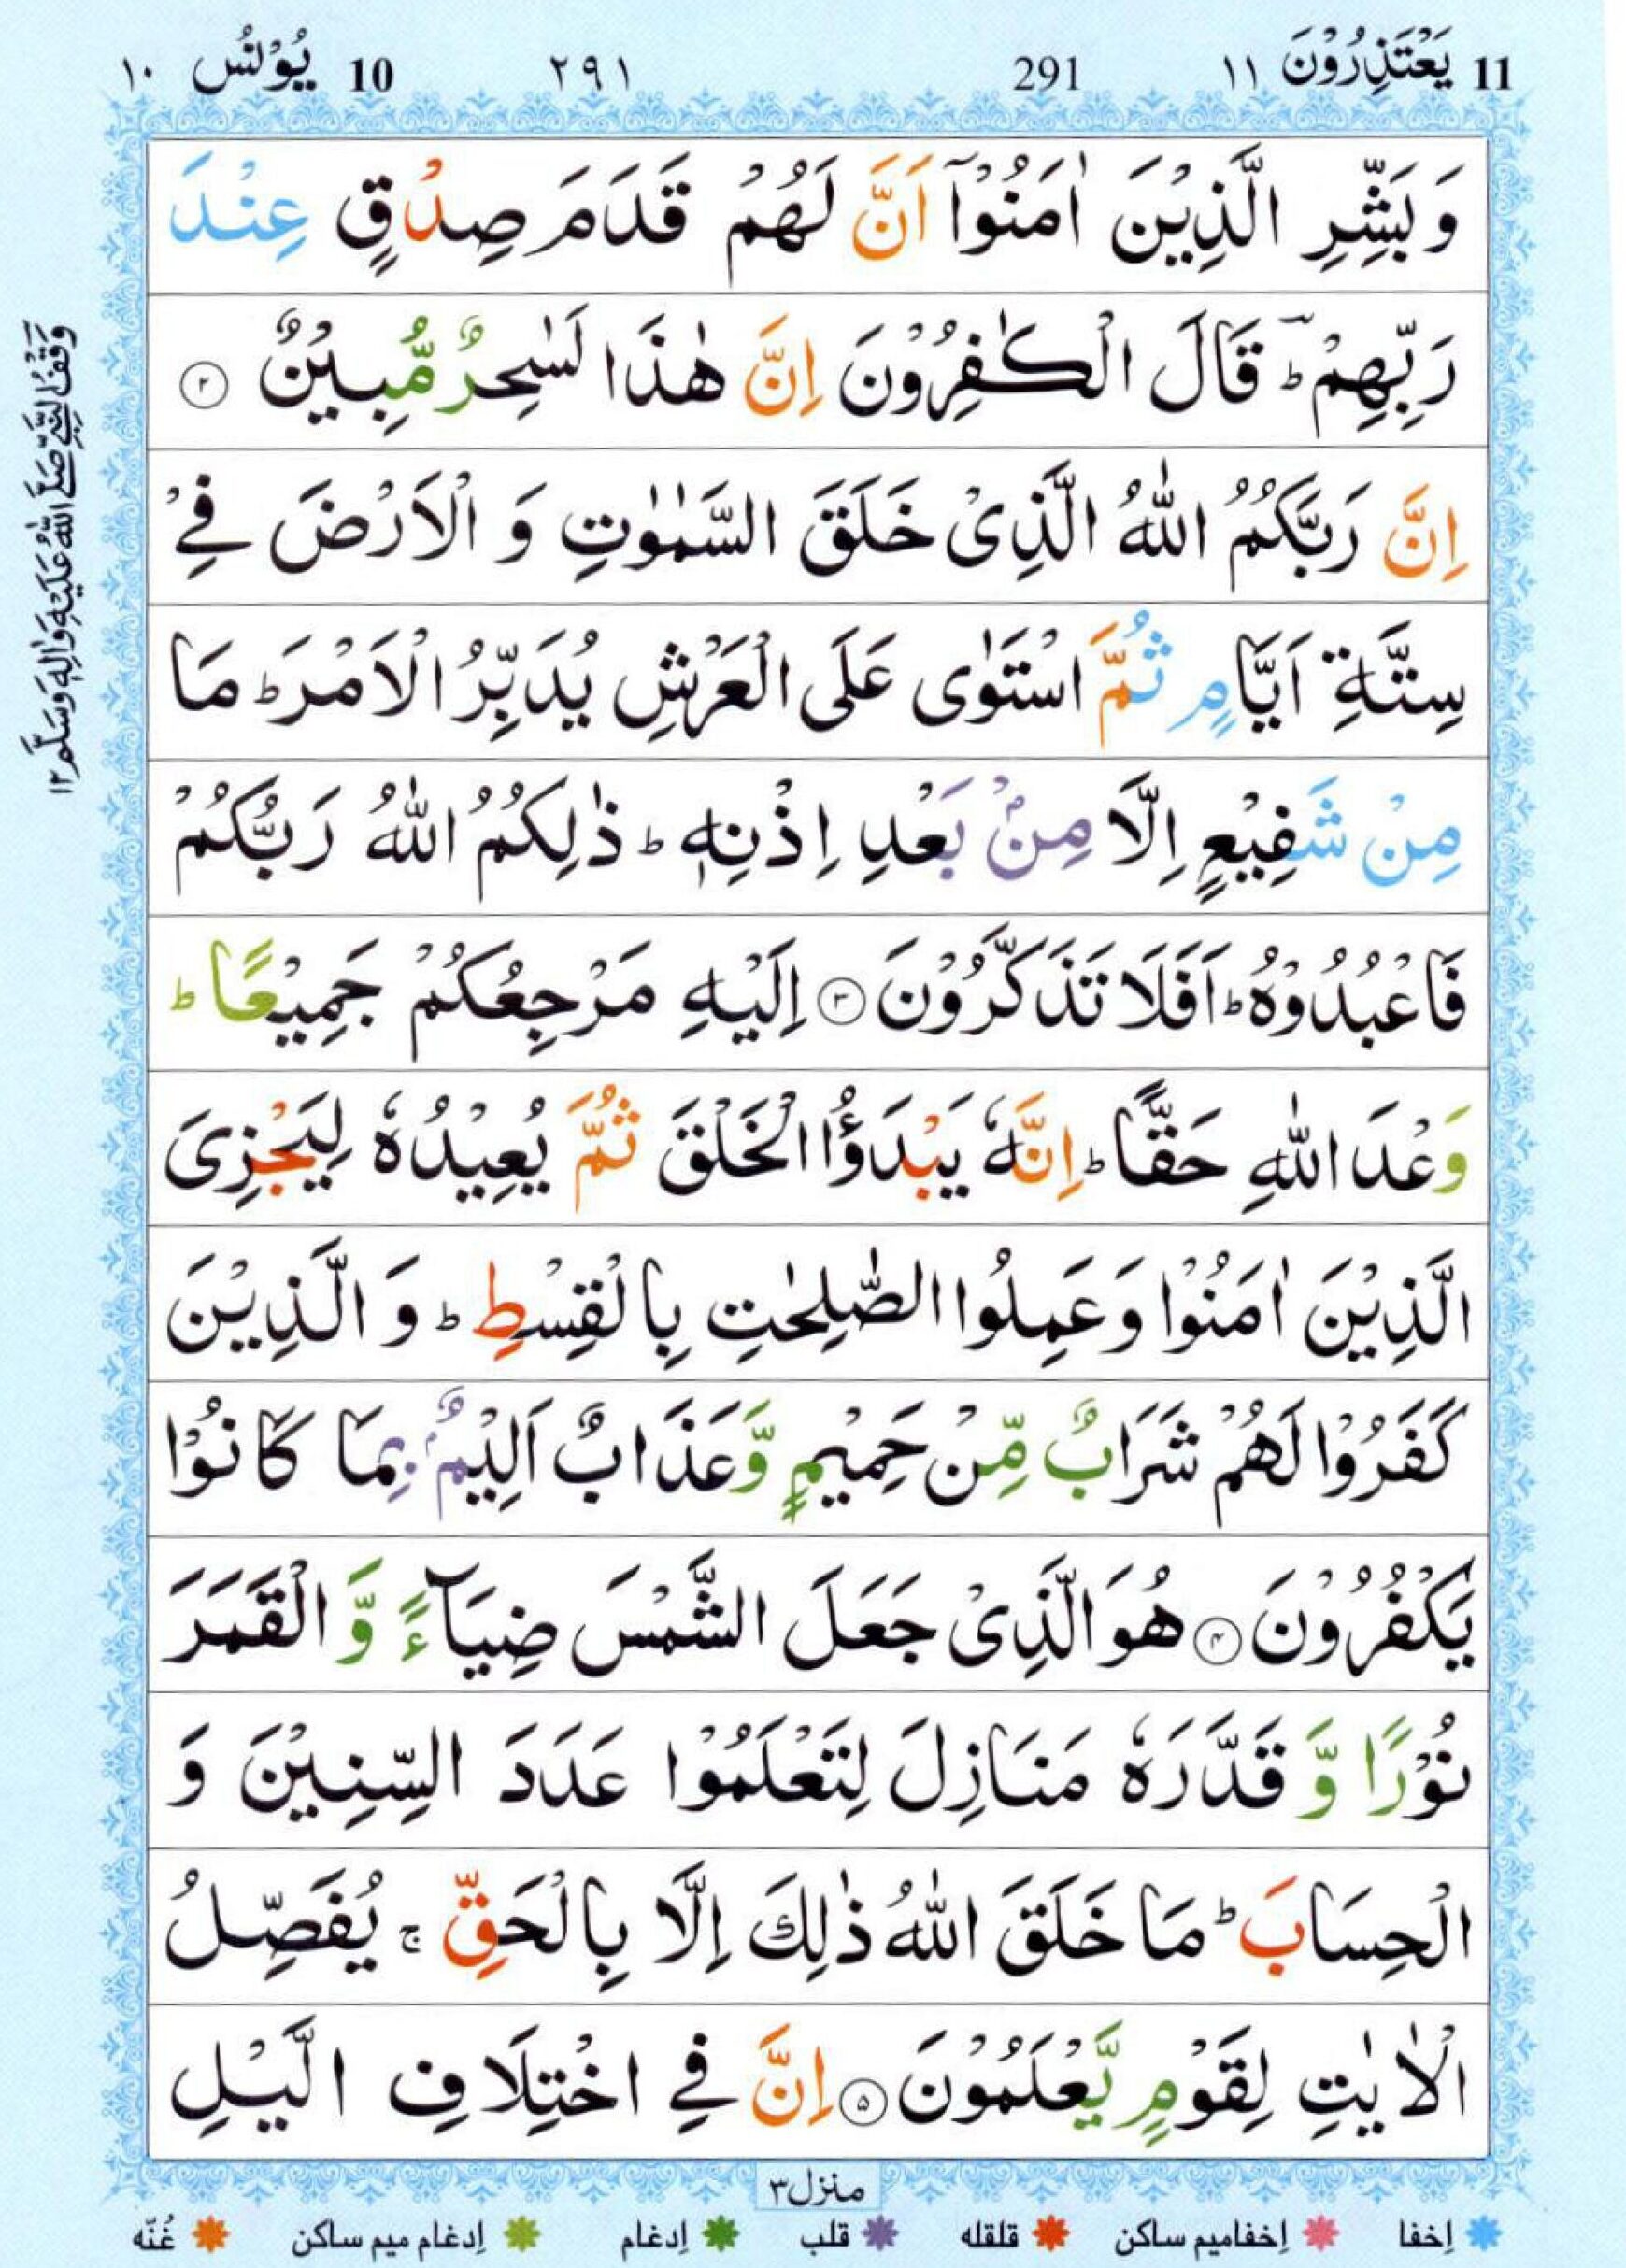 11 يَعْتَذِرُوْنَ ١١ 291 ٢٩١ 10 يُوْنُس ١٠
وَ بَشِّرِ الَّذِيْنَ اٰمَنُوْۤا اَنَّ لَهُمْ قَدَمَ صِدْقٍ عِنْدَ
رَبِّهِمْ ؕؔ قَالَ الْكٰفِرُوْنَ اِنَّ هٰذَا لَسٰحِرٌ مُّبِيْنٌ ۝۲
اِنَّ رَبَّكُمُ اللّٰهُ الَّذِىْ خَلَقَ السَّمٰوٰتِ وَ الْاَرْضَ فِىْ
سِتَّةِ اَيَّامٍ ثُمَّ اسْتَوٰى عَلَى الْعَرْشِ يُدَبِّرُ الْاَمْرَ ؕ مَا
مِنْ شَفِيْعٍ اِلَّا مِنْۢ بَعْدِ اِذْنِهٖ ؕ ذٰلِكُمُ اللّٰهُ رَبُّكُمْ
فَاعْبُدُوْهُ ؕ اَفَلَا تَذَكَّرُوْنَ ۝۳ اِلَيْهِ مَرْجِعُكُمْ جَمِيْعًا ؕ
وَعْدَ اللّٰهِ حَقًّا ؕ اِنَّهٗ يَبْدَؤُا الْخَلْقَ ثُمَّ يُعِيْدُهٗ لِيَجْزِىَ
الَّذِيْنَ اٰمَنُوْا وَ عَمِلُوا الصّٰلِحٰتِ بِالْقِسْطِ ؕ وَ الَّذِيْنَ
كَفَرُوْا لَهُمْ شَرَابٌ مِّنْ حَمِيْمٍ وَّ عَذَابٌ اَلِيْمٌۢ بِمَا كَانُوْا
يَكْفُرُوْنَ ۝۴ هُوَ الَّذِىْ جَعَلَ الشَّمْسَ ضِيَآءً وَّ الْقَمَرَ
نُوْرًا وَّ قَدَّرَهٗ مَنَازِلَ لِتَعْلَمُوْا عَدَدَ السِّنِيْنَ وَ
الْحِسَابَ ؕ مَا خَلَقَ اللّٰهُ ذٰلِكَ اِلَّا بِالْحَقِّ ۚ يُفَصِّلُ
الْاٰيٰتِ لِقَوْمٍ يَّعْلَمُوْنَ ۝۵ اِنَّ فِى اخْتِلَافِ الَّيْلِ
وَقْفُ النَّبِىِّ صَلَّى اللّٰهُ عَلَيْهِ وَاٰلِهٖ وَسَلَّمَ ١٢
منزل ٣
إخفا إخفامیم ساکن قلقله قلب إدغام إدغام میم ساکن غُنّه